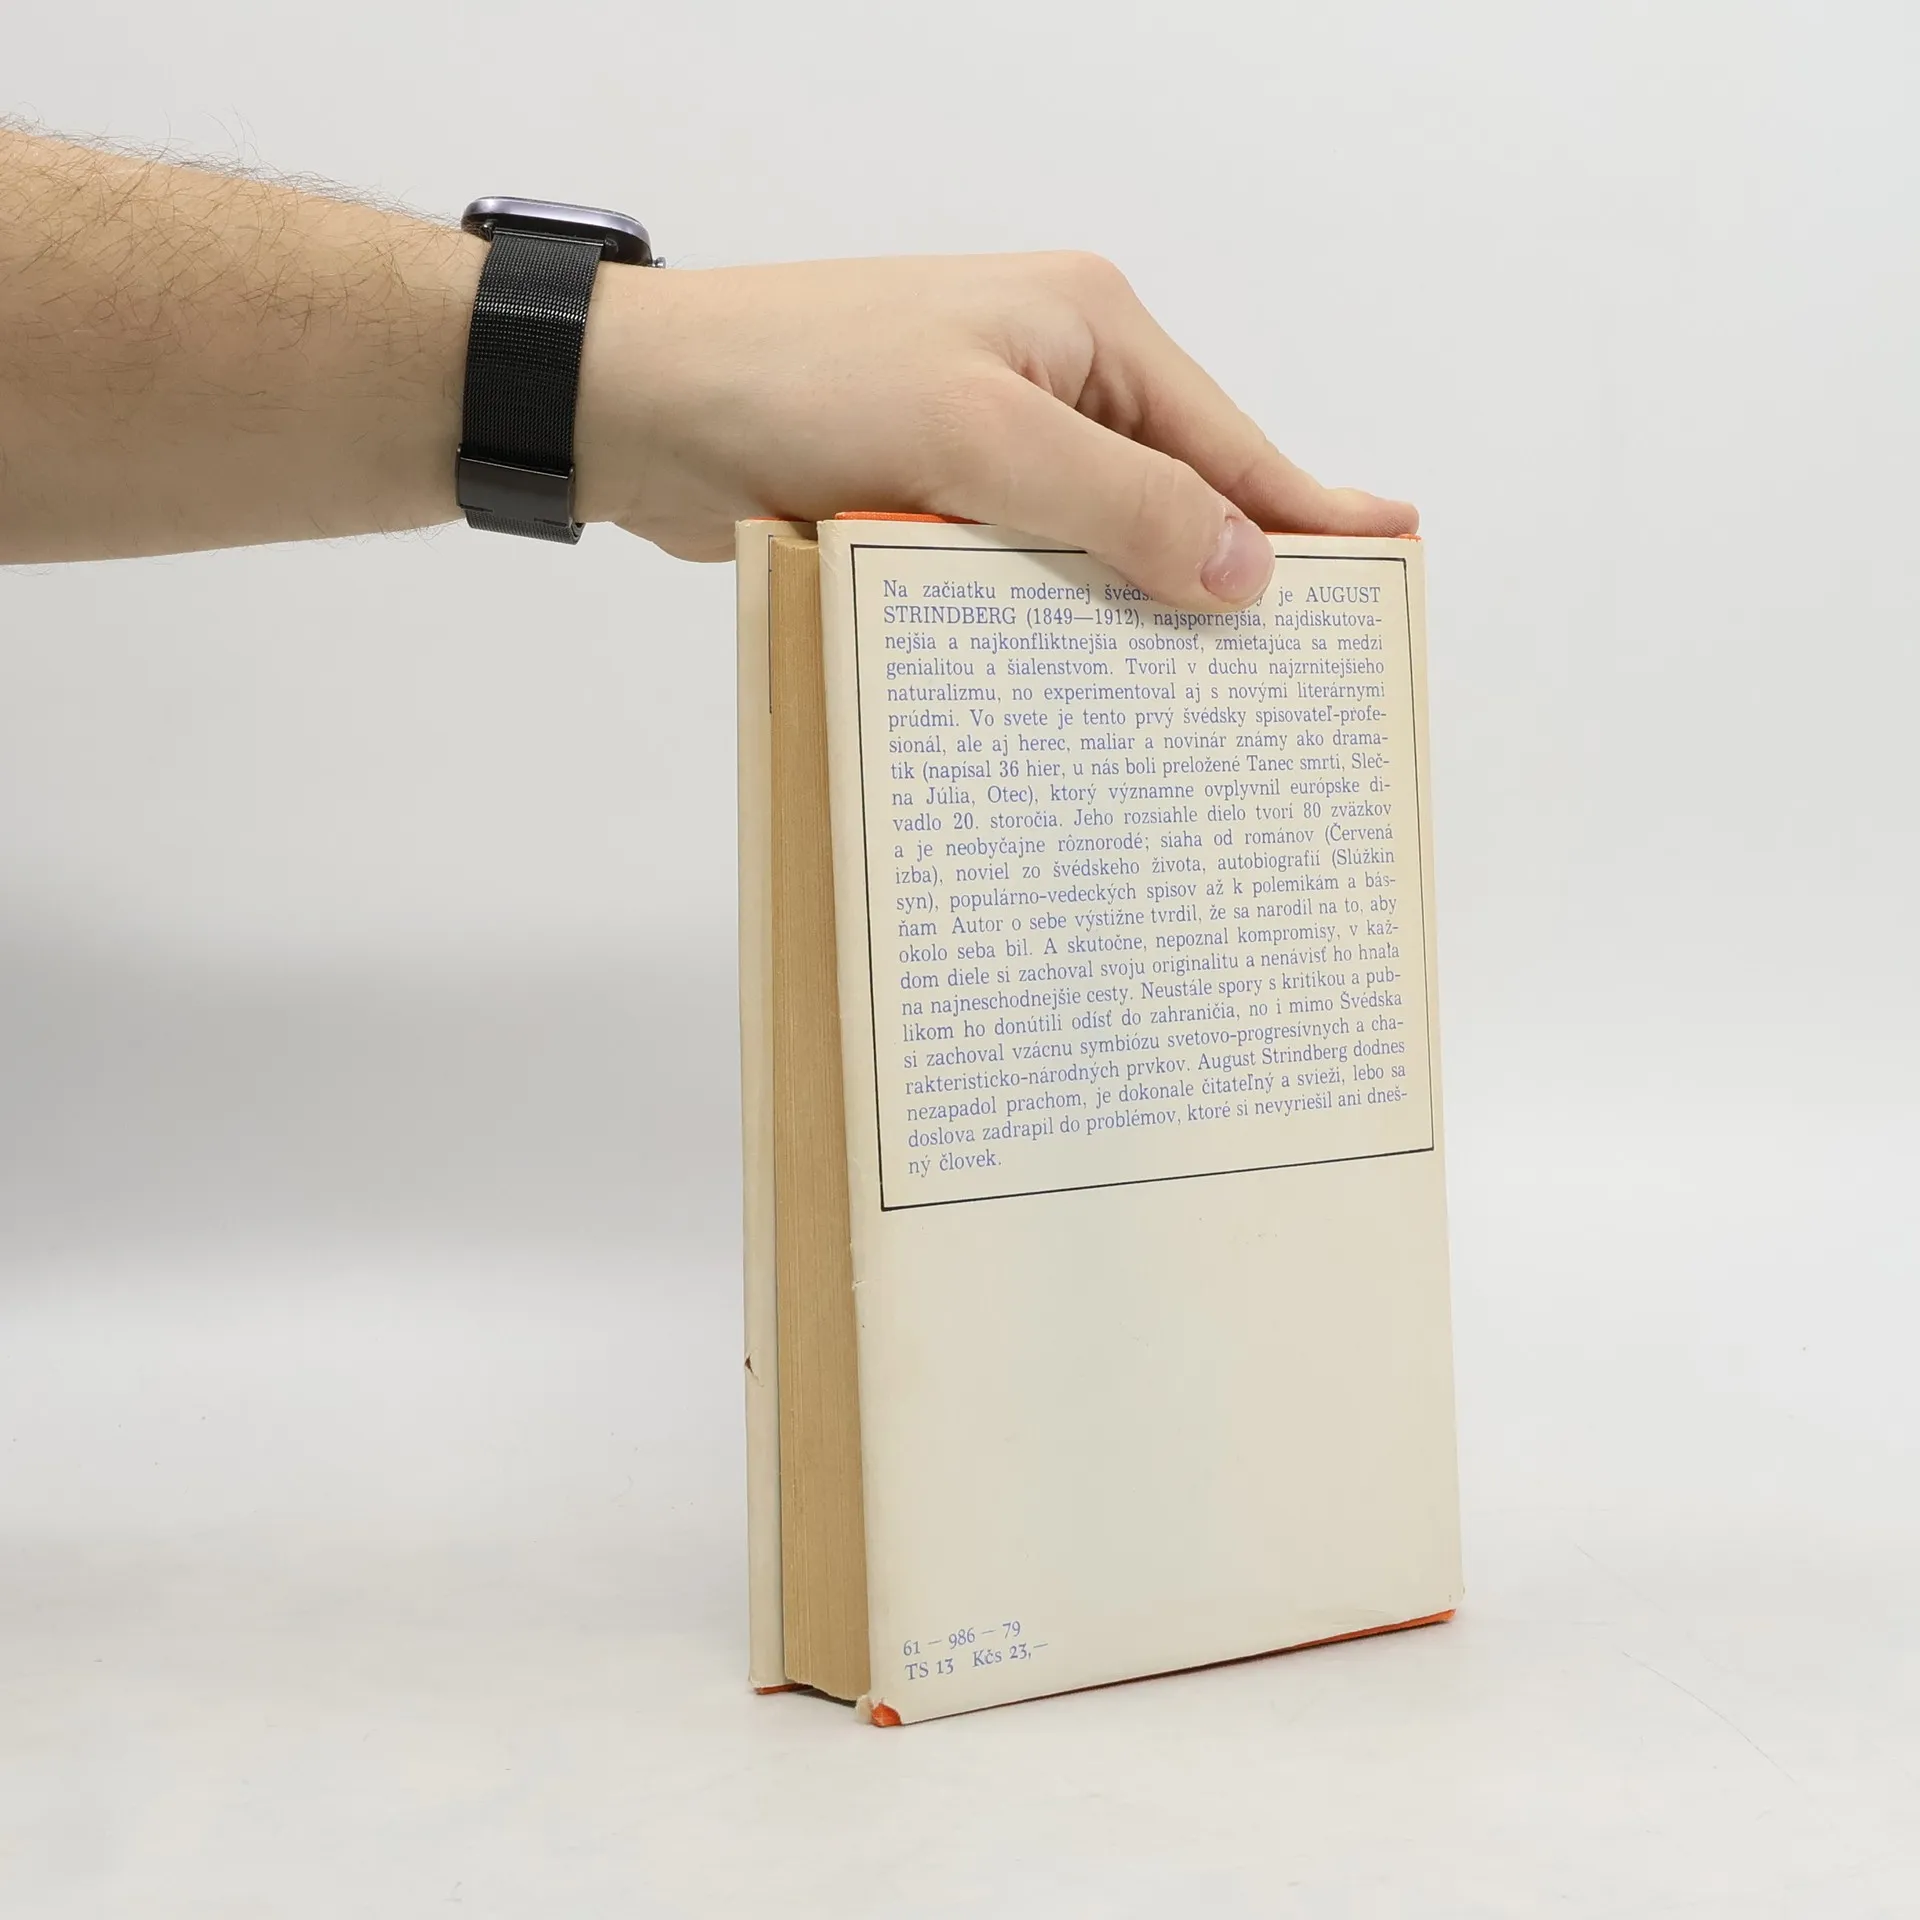 Na začiatku modernej švéds je AUGUST
STRINDBERG (1849—1912), najspornejšia, najdiskutova-
nejšia a najkonfliktnejšia osobnosť, zmietajúca sa medzi
genialitou a šialenstvom. Tvoril v duchu najzrnitejšieho
naturalizmu, no experimentoval aj s novými literárnymi
prúdmi. Vo svete je tento prvý švédsky spisovateľ-profe-
sionál, ale aj herec, maliar a novinár známy ako drama-
tik (napísal 36 hier, u nás boli preložené Tanec smrti, Sleč-
na Júlia, Otec), ktorý významne ovplyvnil európske di-
vadlo 20. storočia. Jeho rozsiahle dielo tvorí 80 zväzkov
a je neobyčajne rôznorodé; siaha od románov (Červená
izba), noviel zo švédskeho života, autobiografií (Slúžkin
syn), populárno-vedeckých spisov až k polemikám a bás-
ňam Autor o sebe výstižne tvrdil, že sa narodil na to, aby
okolo seba bil. A skutočne, nepoznal kompromisy, v kaž-
dom diele si zachoval svoju originalitu a nenávisť ho hnala
na najneschodnejšie cesty. Neustále spory s kritikou a pub-
likom ho donútili odísť do zahraničia, no i mimo Švédska
si zachoval vzácnu symbiózu svetovo-progresívnych a cha-
rakteristicko-národných prvkov. August Strindberg dodnes
nezapadol prachom, je dokonale čitateľný a svieži, lebo sa
doslova zadrapil do problémov, ktoré si nevyriešil ani dneš-
ný človek.
61 — 986 — 79
TS 13 Kčs 23,—